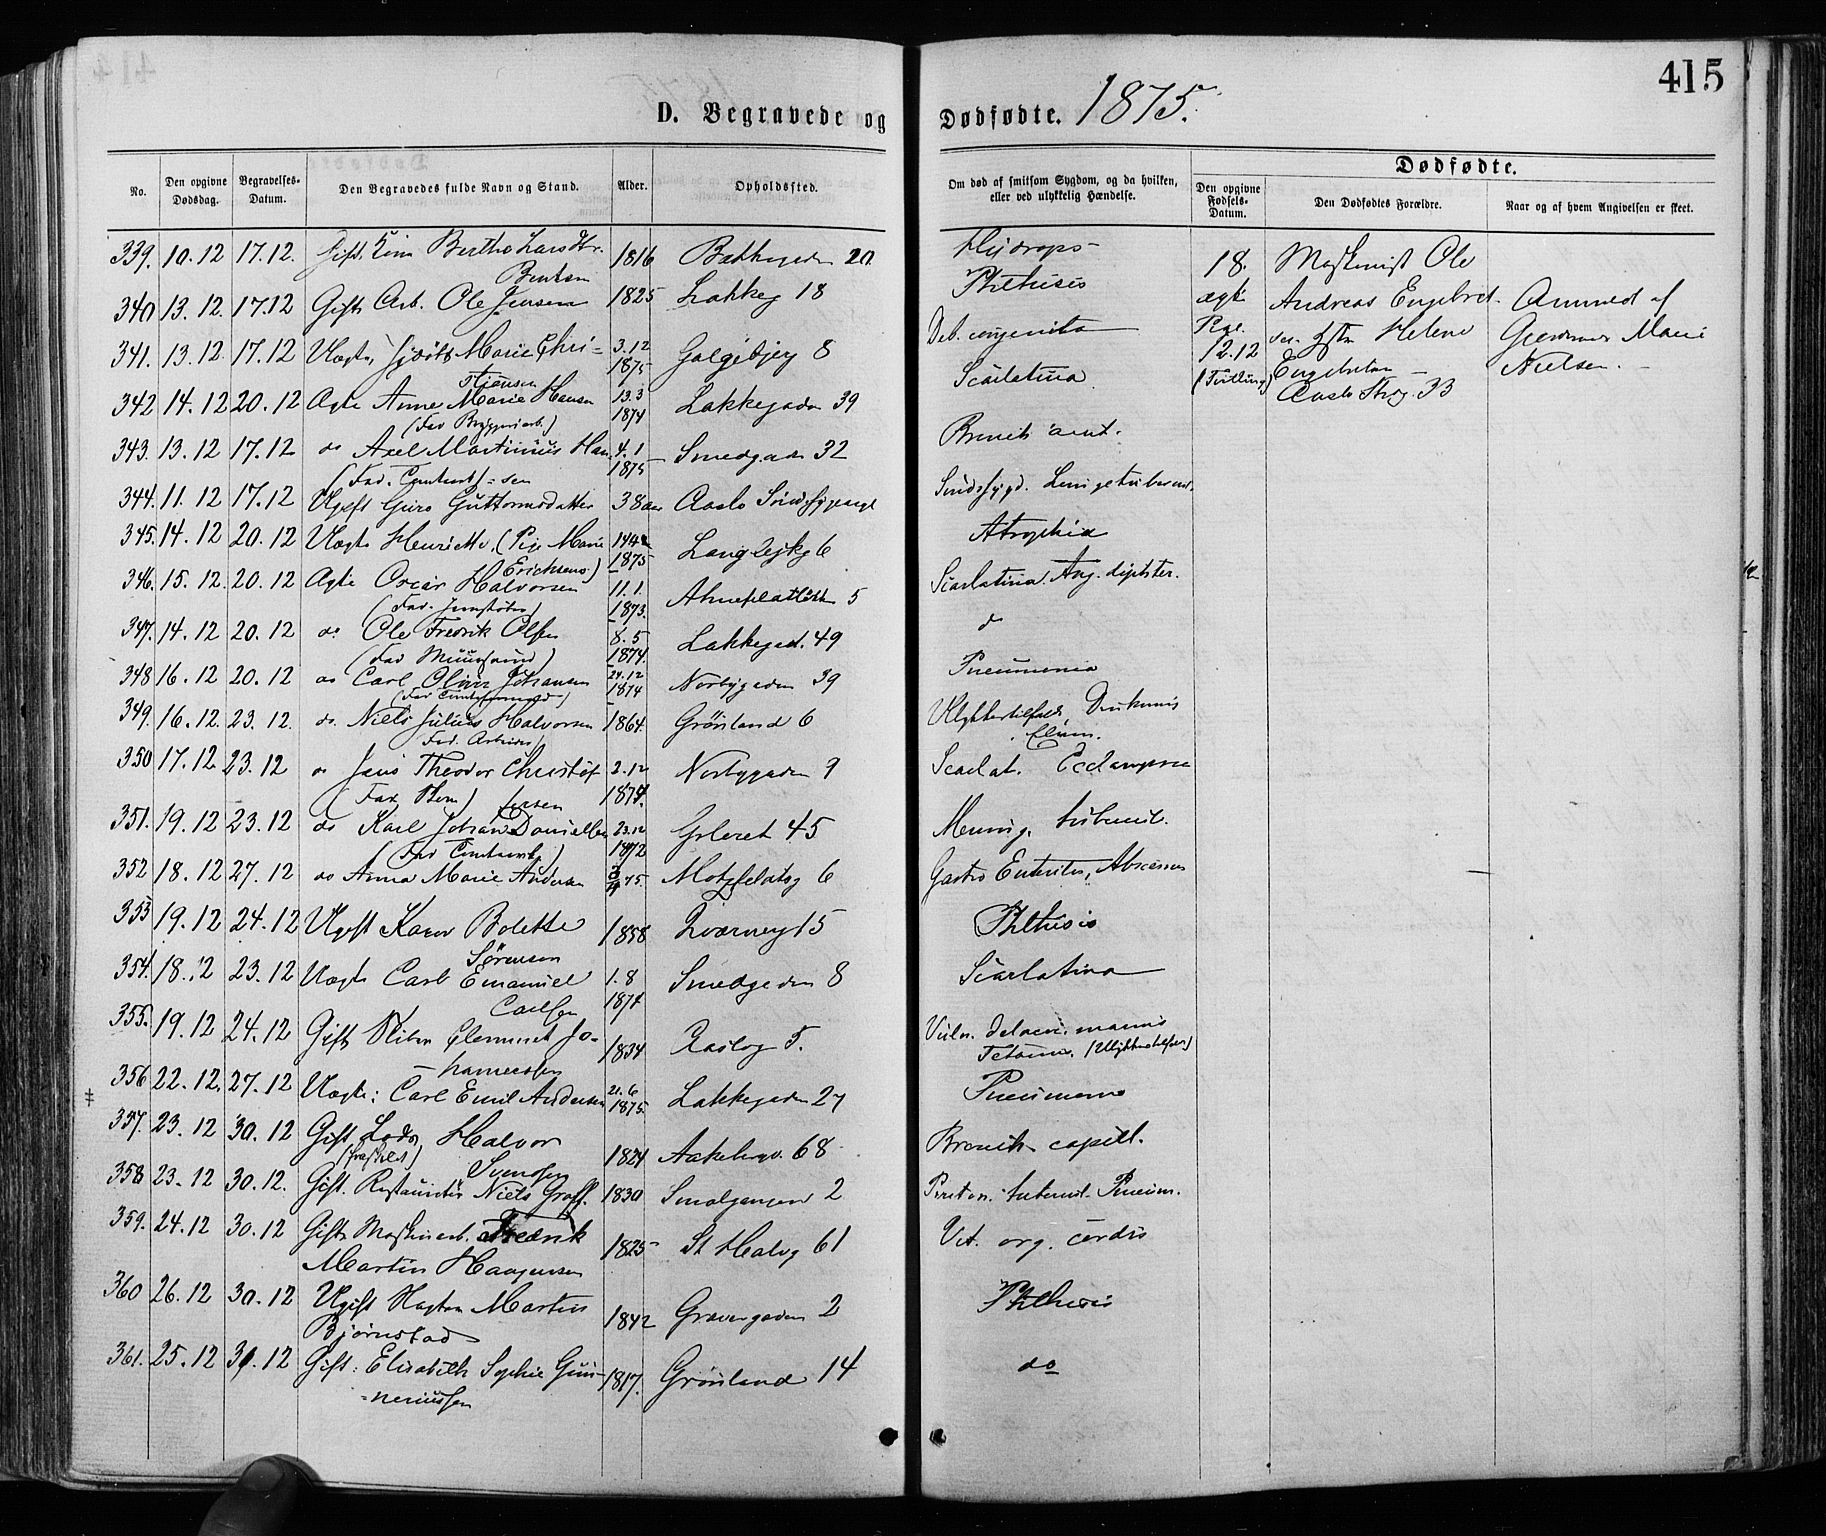 415
D. Begravede og Dødfødte. 1875.
Dødfødte.
No.
Den opgivne Dødsdag.
Begravelses-Datum.
Den Begravedes fulde Navn og Stand.
Alder.
Opholdssted.
Om død af smitsom Sygdom, og da hvilken, eller ved ulykkelig Hændelse.
Den opgivne Fødsels-Datum.
Den Dødfødtes Forældre.
Naar og af hvem Angivelsen er skeet.
339. 10.12 17.12. Gift Berthe Larsdtr. 1816 20 Hydrops
Bentsen
340 13.12. 17.12 Gift Arb. Ole Jensen 1825 Lakkeg 18 Phthisis
341. 13.12. 17.12 Uægte, Marie Chri= 3.12 Galgebjerg 8 Deb. congenita
stiansen 1875
342 14.12 20.12 Ægte Anne Marie Hansen 13.3 Lakkegaden 39 Scarlatina
(Fad Bryggeriarb.) 1874
343. 13.12 17.12 do Axel Martinius Han 4.1 Smedgaden 32 Bronch acut.
(Fad. ) =sen 1875
344. 11.12 17.12 Ugift Guro Guttormsdatter 38 aar Aaslo Sindssygeasyl Sindssygd.
345. 14.12 20.12 Uægte Henriette, (Pige Marie 6 Atrophia
Erichsen) 1875
346. 15.12. 20.12 Ægte Oscar Halvorsen 11.1. 5 Scarlatina Ang. diphter.
(Fad. ) 1873.
347. 14.12 20.12 do Ole Fredrik Olsen 8.5 Lakkegad. 49 d
(Fad Muursvend) 1874.
348 16.12 20.12 do Carl Johansen 24.12 Norbygaden 39 Pneumonia
1874
349. 16.12. 23.12. do. Niels Julius Halvorsen 1864. Grønland 6 Ulykkestilfælde, Druknet i
Fad. Arbeider) Elven.
350 17.12 23.12 do Jens Theodor Christof 2.12 Norbygaden 9 Scarlat. Eclampsia
(Fad ) fersen 1874.
351. 19.12 23.12 do Karl Johan Danielsen 23.12 Grleret 45 Mening. tubercul.
1872
352 18.12 27.12 do Anna Marie Andersen 75. Motzfeldtsg 6 Gastro Enteritis, Abscesser
353 19.12 24.12 Ugift Karen Bolette 1858 15 Phthisis
Sørensen
354. 18.12 23.12 Uægte Carl Emanuel 1.8 Smedgaden 8 Scarlatina
Carlsen 1874
355. 19.12 24.12 Gift Clemmet Jo= 1834 5. Vuln. manus
hannessen Tetanus. (Ulykkestilfælde)
356 22.12. 27.12 Uægte: Carl Emil Andersen 21.6 Lakkegaden 27 Pneumonia
1875.
357. 23.12 30.12 Gift Lods Halvor 1824 68 Bronch. capill.
(fraskilt) Svendsen
358 23.12 30.12. Gift. Restauratør Niels Graff. 1830 Smalgangen 2 Periton. tubercul. Pneum.
359. 24.12 30.12 Gift Maskinarb. Fredrik 1825 St Halvg 61 Vit. org. cordis
Martin Haagensen
360 26.12 30.12 Ugift Martin 1842 Grønnegaden 2 Phthisis
Bjørnstad
361. 25.12 31.12 Gift: Elisabeth Sophie Gun= 1817. Grønland 14 do
=neriussen
18. Maskinist Ole
ægte Andreas Engebret Anmeld af
sen Helene Marie
12.12 Engebretsen Nielsen.
(Tvilling) Aaslo 33